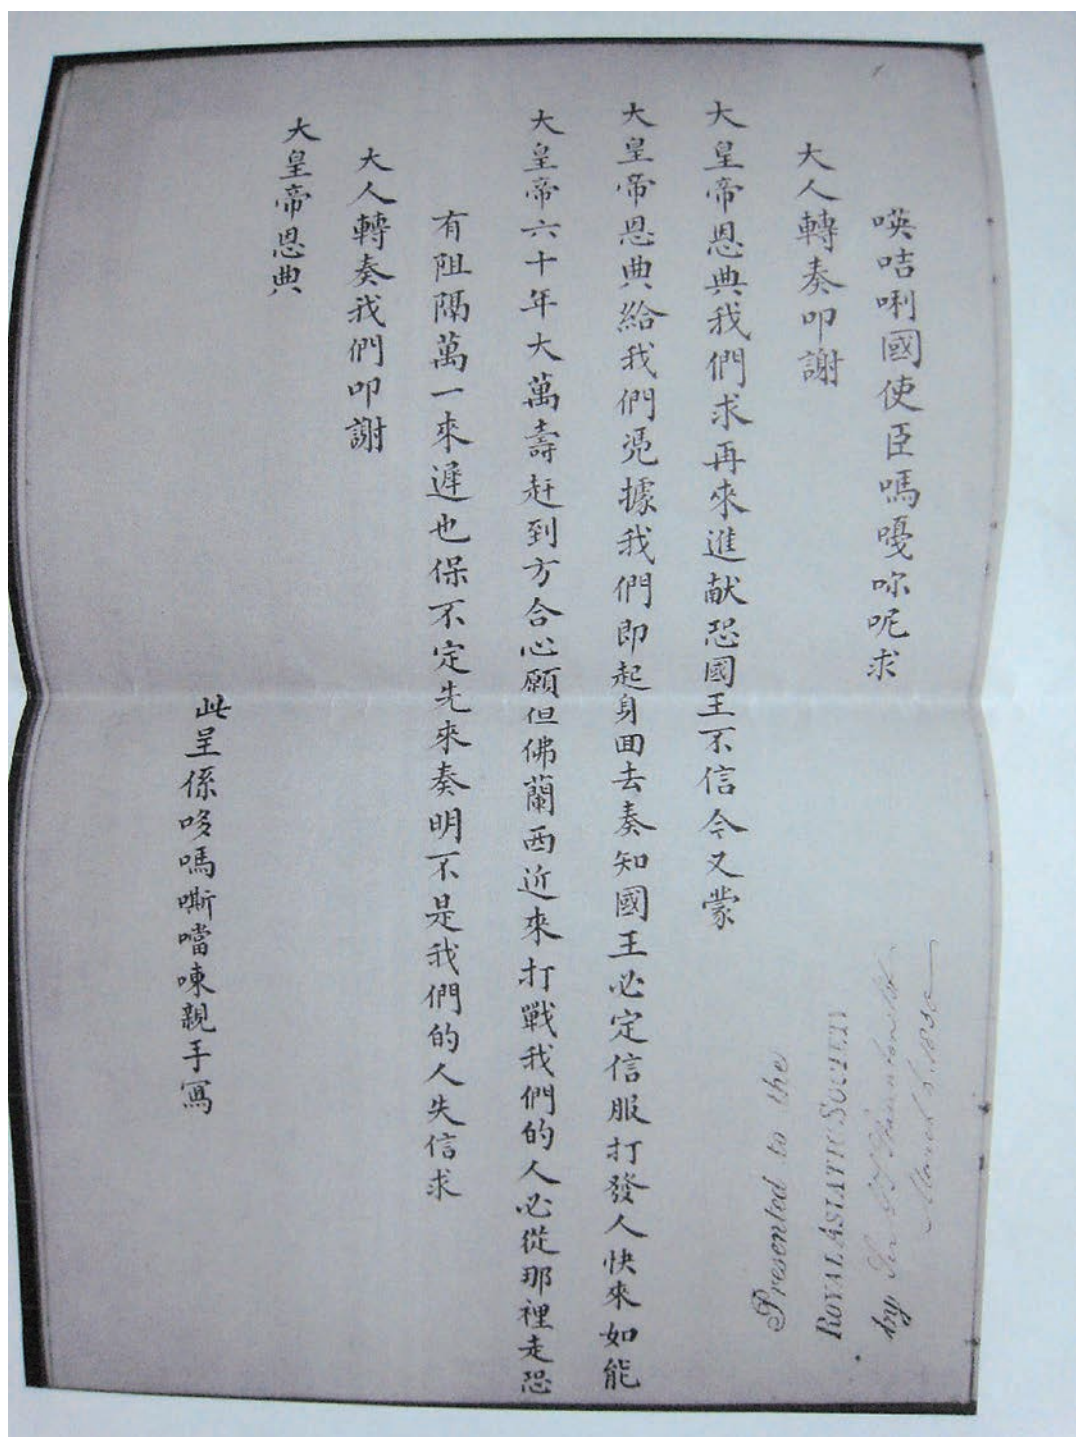 㗲咭唎國使臣嗎嘎㖇呢求
大人轉奏叩謝
大皇帝恩典我們求再來進献恐國王不信今又蒙
大皇帝恩典給我們凴據我們即起身回去奏知國王必定信服打發人快來如能
大皇帝六十年大萬壽赶到方合心願但佛蘭西近來打戰我們的人必從那裡走恐
有阻隔萬一來遲也保不定先來奏明不是我們的人失信求
大人轉奏我們叩謝
大皇帝恩典
此呈係哆嗎嘶噹㖦親手寫
Presented to the
ROYAL ASIATIC SOCIETY
by Sir G T Staunton
March 1830